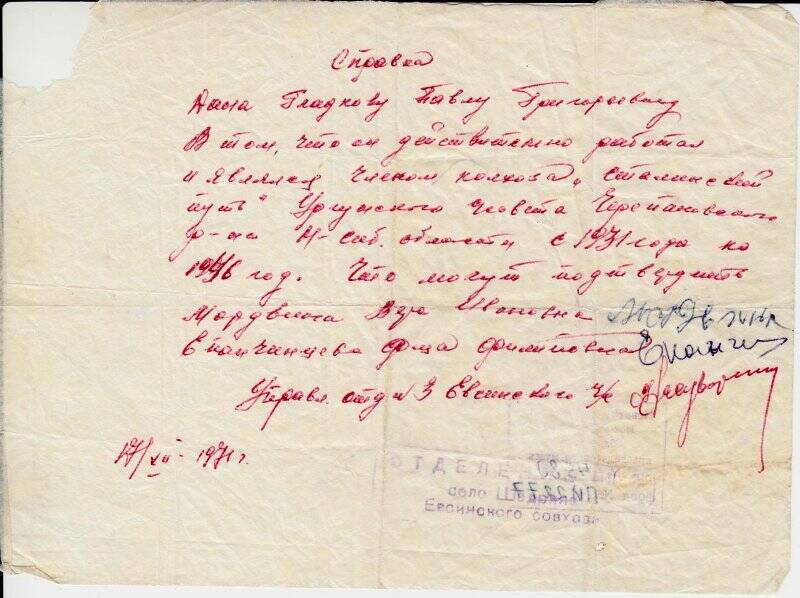 Справка
Дана Гладкову Павлу Григорьевичу
В том, что он действительно работал
и являлся членом колхоза „Сталинский
путь" Ургунского с/совета Черепановского
р-на Н-сиб. области с 1931 года по
1946 год. Что могут подтвердить
Мордвина Вера Ивановна
Епанчинцева Фрина Филиповна
Управл. отд N 3 Евсинского с/х
17/XII - 1971 г.
ОТДЕЛЕ
село
Евсинского совхоза